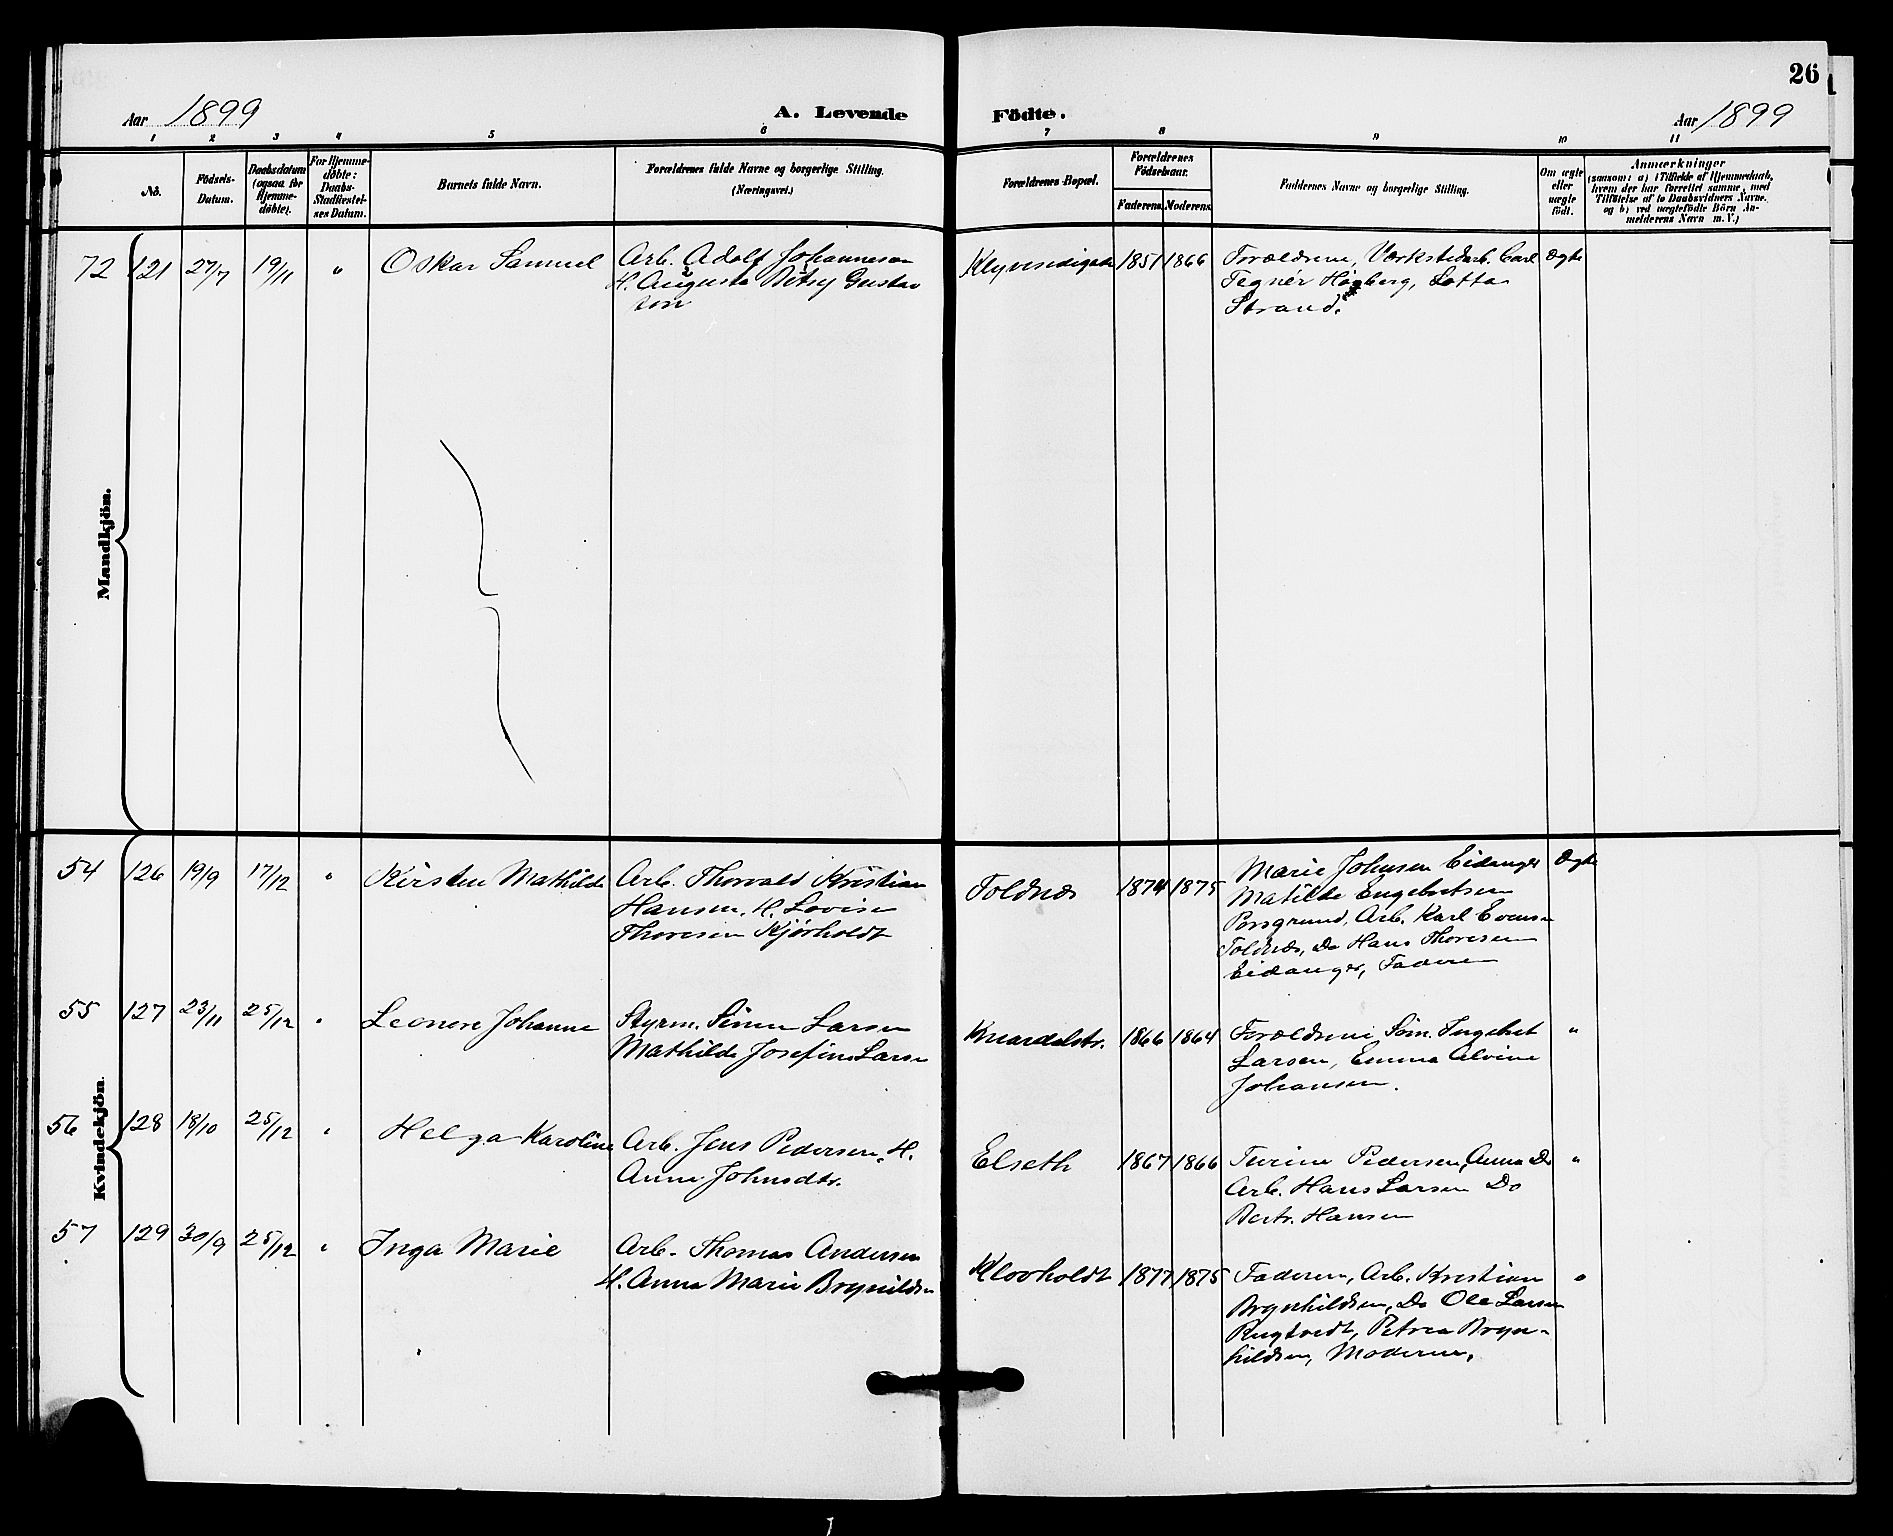 26
Aar 1899 A. Levende Födte. Aar 1899
1 2 3 4 5 6 7 8 9 10 11
No.
Födsels-
Datum.
Daabsdatum
(ogsaa for
Hjemme-
döbte).
For Hjemme-
döbte:
Daabs-
Stadfæstel-
ses Datum.
Barnets fulde Navn.
Forældrenes fulde Navne og borgerlige Stilling.
(Næringsvei.)
Forældrenes Bopæl.
Forældrenes
Födselsaar.
Faderens. Moderens.
Faddernes Navne og borgerlige Stilling.
Om ægte
eller
uægte
födt.
Anmærkninger
(saasom: a) i Tilfælde af Hjemmedaab,
hvem der har forrettet samme, med
Tilföielse af to Daabsvidners Navne,
og b) ved uægtefödte Börn An-
melderens Navn m. V.)
Mandkjön.
72 121 27/7 19/11 " Oskar Samuel
Arb. Adolf Johanneson
H. Augusta Betsy Gustav
son
1851 1866
Forældrene, Værkstedarb. Carl
Tegnér Högberg, Lotta
Strand.
Ægte
Kvindekjön.
54 126 19/9 17/12 " Kirsten Mathilde
Arb. Thorvald Kristian
Hansen, H. Lovise
Thoresen Kjörholdt
Toldnæs 1874 1875
Marie Johnsen Eidanger
Matilde Engebretsen
Porsgrund, Arb. Karl Evensen
Toldnæs, Do Hans Thoresen
Eidanger, Faderen
Ægte
55 127 23/11 25/12 " Leonore Johanne
Styrm. Simen Larsen
Mathilde Josefine Larsen
Knardalstr. 1866 1864
Forældrene, Söm. Ingebret
Larsen, Emma Alvine
Johansen.
"
56 128 18/10 25/12 " Helga Karoline
Arb. Jens Pedersen, H.
Anne Johnsdtr.
Elseth 1867 1866
Pedersen, Anna Do
Arb. Hans Larsen Do
Hansen
"
57 129 30/9 25/12 " Inga Marie
Arb. Thomas Andersen
H. Anna Marie Brynildsen
Klovholdt 1877 1875
Faderen, Arb. Kristian
Brynhildsen, Do Ole Larsen
Rugtvedt, Petrea Bryn-
hildsen, Moderen.
"